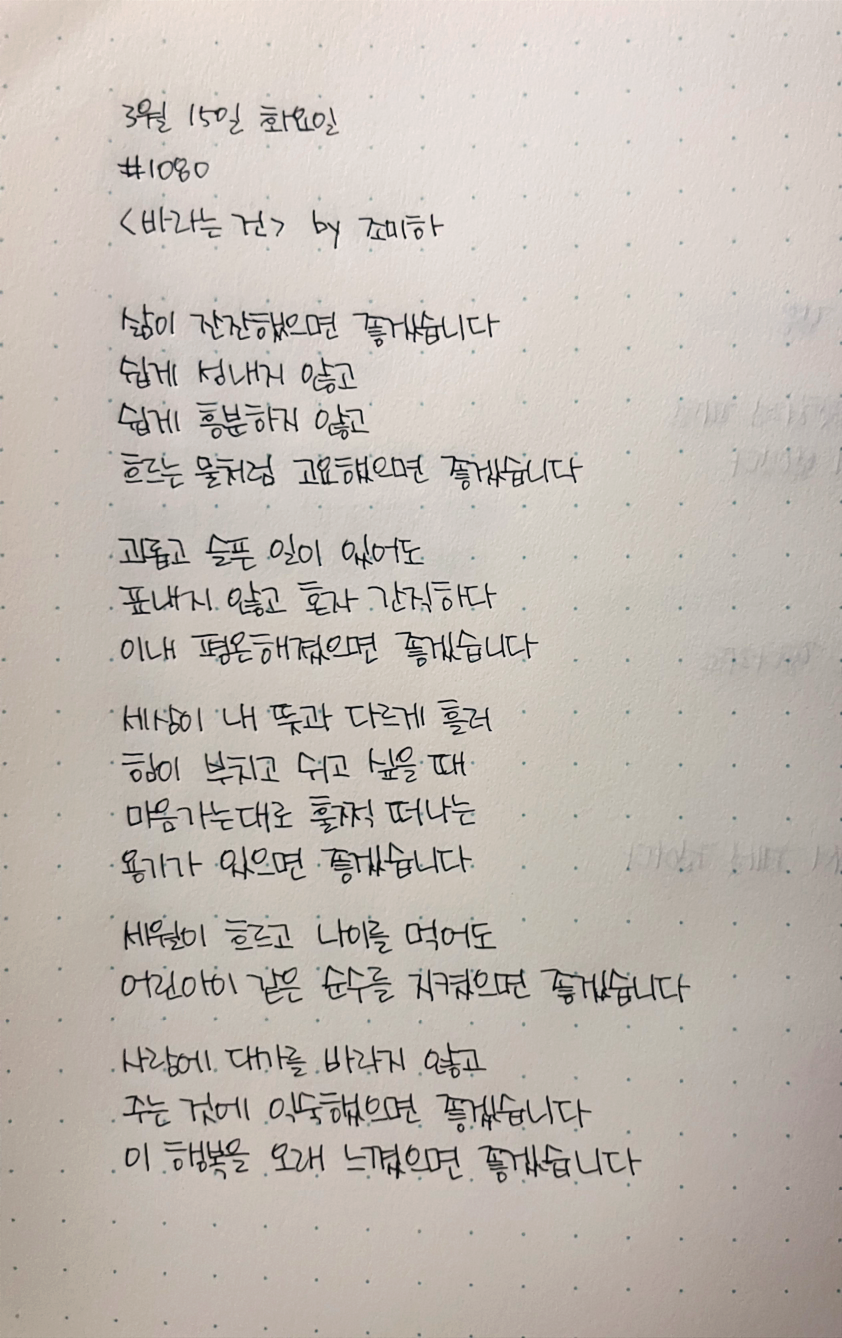 3월 15일 화요일
#1080
<바라는 건> by 조미하
삶이 잔잔했으면 좋겠습니다
쉽게 성내지 않고
쉽게 흥분하지 않고
흐르는 물처럼 고요했으면 좋겠습니다
괴롭고 슬픈 일이 있어도
표내지 않고 혼자 간직하다
이내 평온해졌으면 좋겠습니다
세상이 내 뜻과 다르게 흘러
힘이 부치고 쉬고 싶을 때
마음가는대로 훌쩍 떠나는
용기가 있으면 좋겠습니다
세월이 흐르고 나이를 먹어도
어린아이 같은 순수를 지켰으면 좋겠습니다
사랑에 대가를 바라지 않고
주는 것에 익숙했으면 좋겠습니다
이 행복을 오래 느꼈으면 좋겠습니다